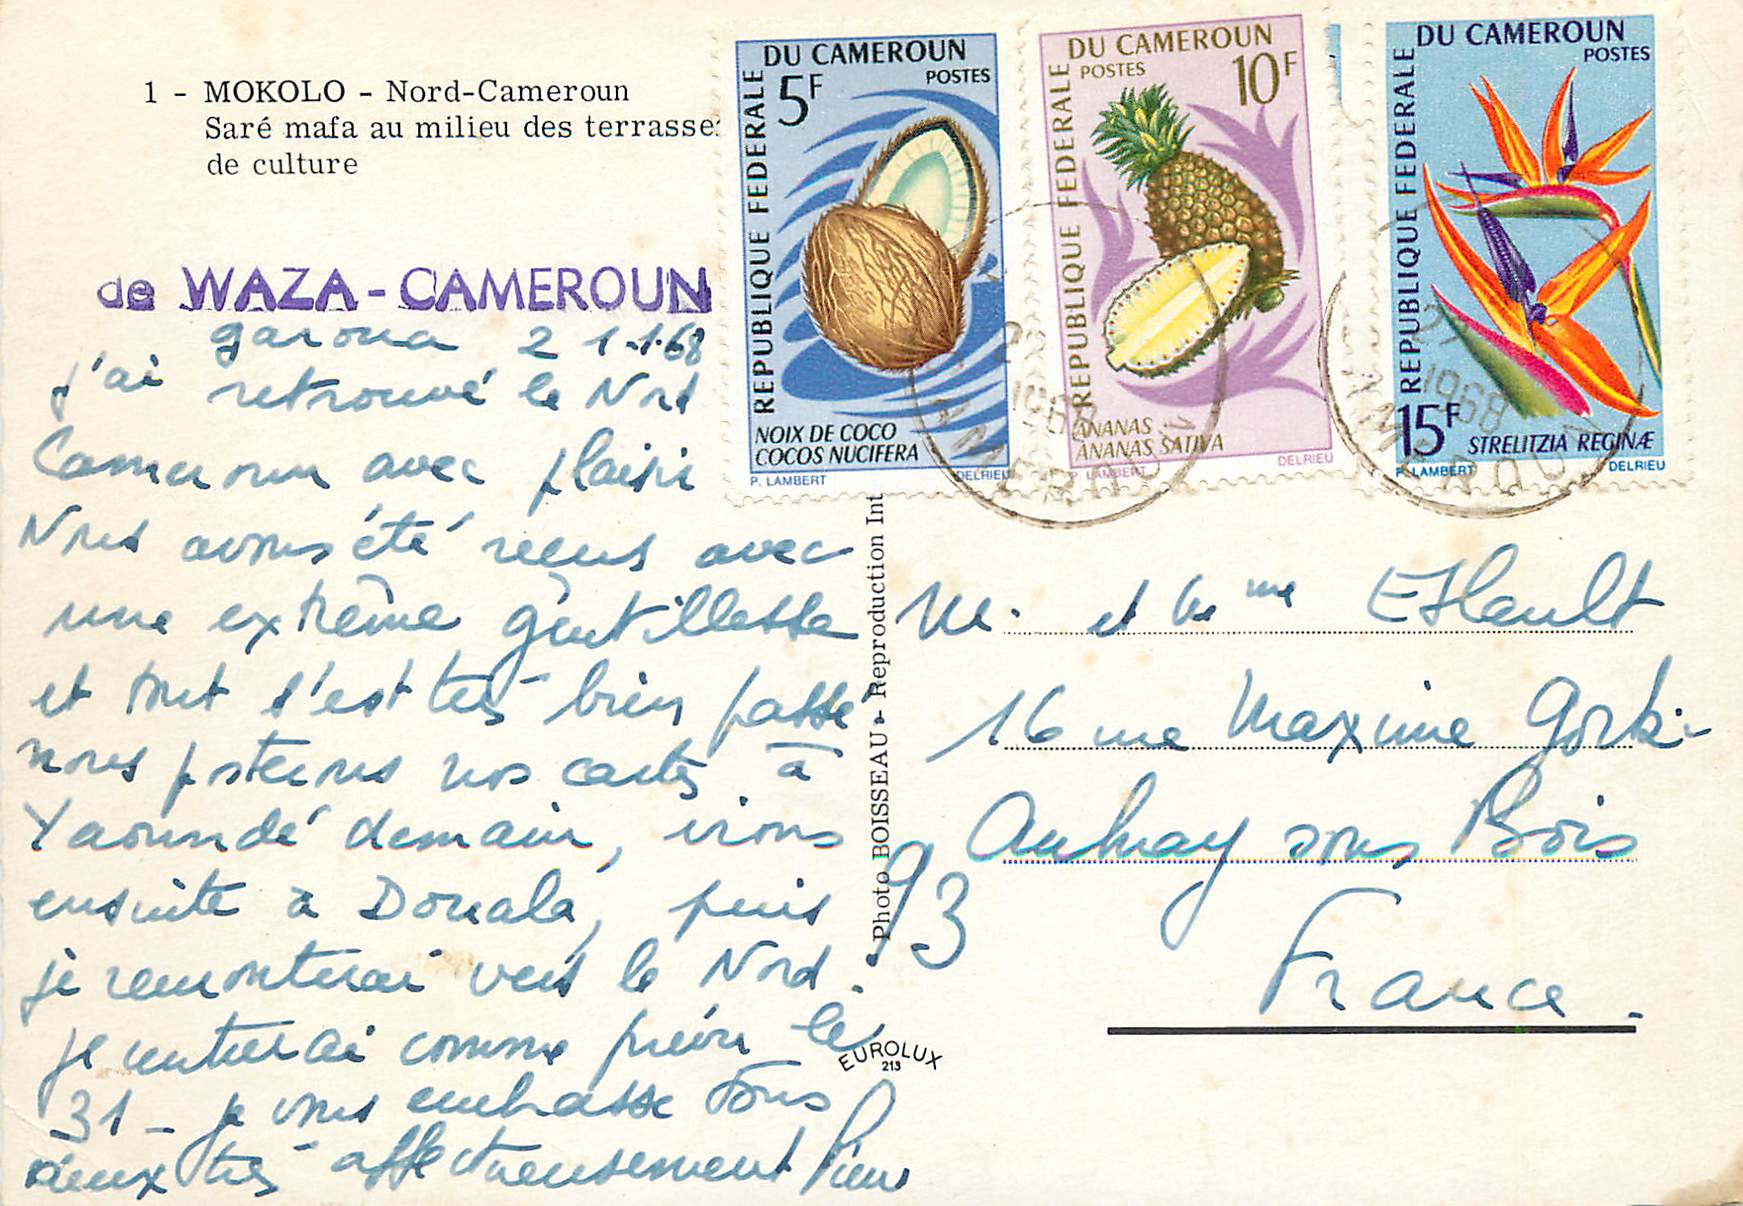 1 - MOKOLO - Nord-Cameroun
Saré mafa au milieu des terrasse
de culture
de WAZA - CAMEROUN
Garoua 21.1.68
j'ai retrouvé le Nord
Cameroun avec plaisir
Nous avons été reçus avec
une extrême gentillesse
et tout s'est très bien passé
nous posterons nos cartes à
Yaoundé demain, irons
ensuite à Douala, puis
je remonterai vers le Nord.
je rentrerai comme prévu le
31 - je vous embrasse tous
deux très affectueusement Pierre
RÉPUBLIQUE FEDERALE
DU CAMEROUN
POSTES
5F
NOIX DE COCO
COCOS NUCIFERA
P. LAMBERT DELRIEU
REPUBLIQUE FEDERALE
DU CAMEROUN
POSTES
10F
ANANAS
ANANAS SATIVA
P. LAMBERT DELRIEU
REPUBLIQUE FEDERALE
DU CAMEROUN
POSTES
15F
STRELITZIA REGINÆ
P. LAMBERT DELRIEU
1968
CAMEROUN
Photo BOISSEAU - Reproduction Int
M. et Mme
16 rue Maxime Gorki
Aulnay sous Bois
93
France.
EUROLUX
213